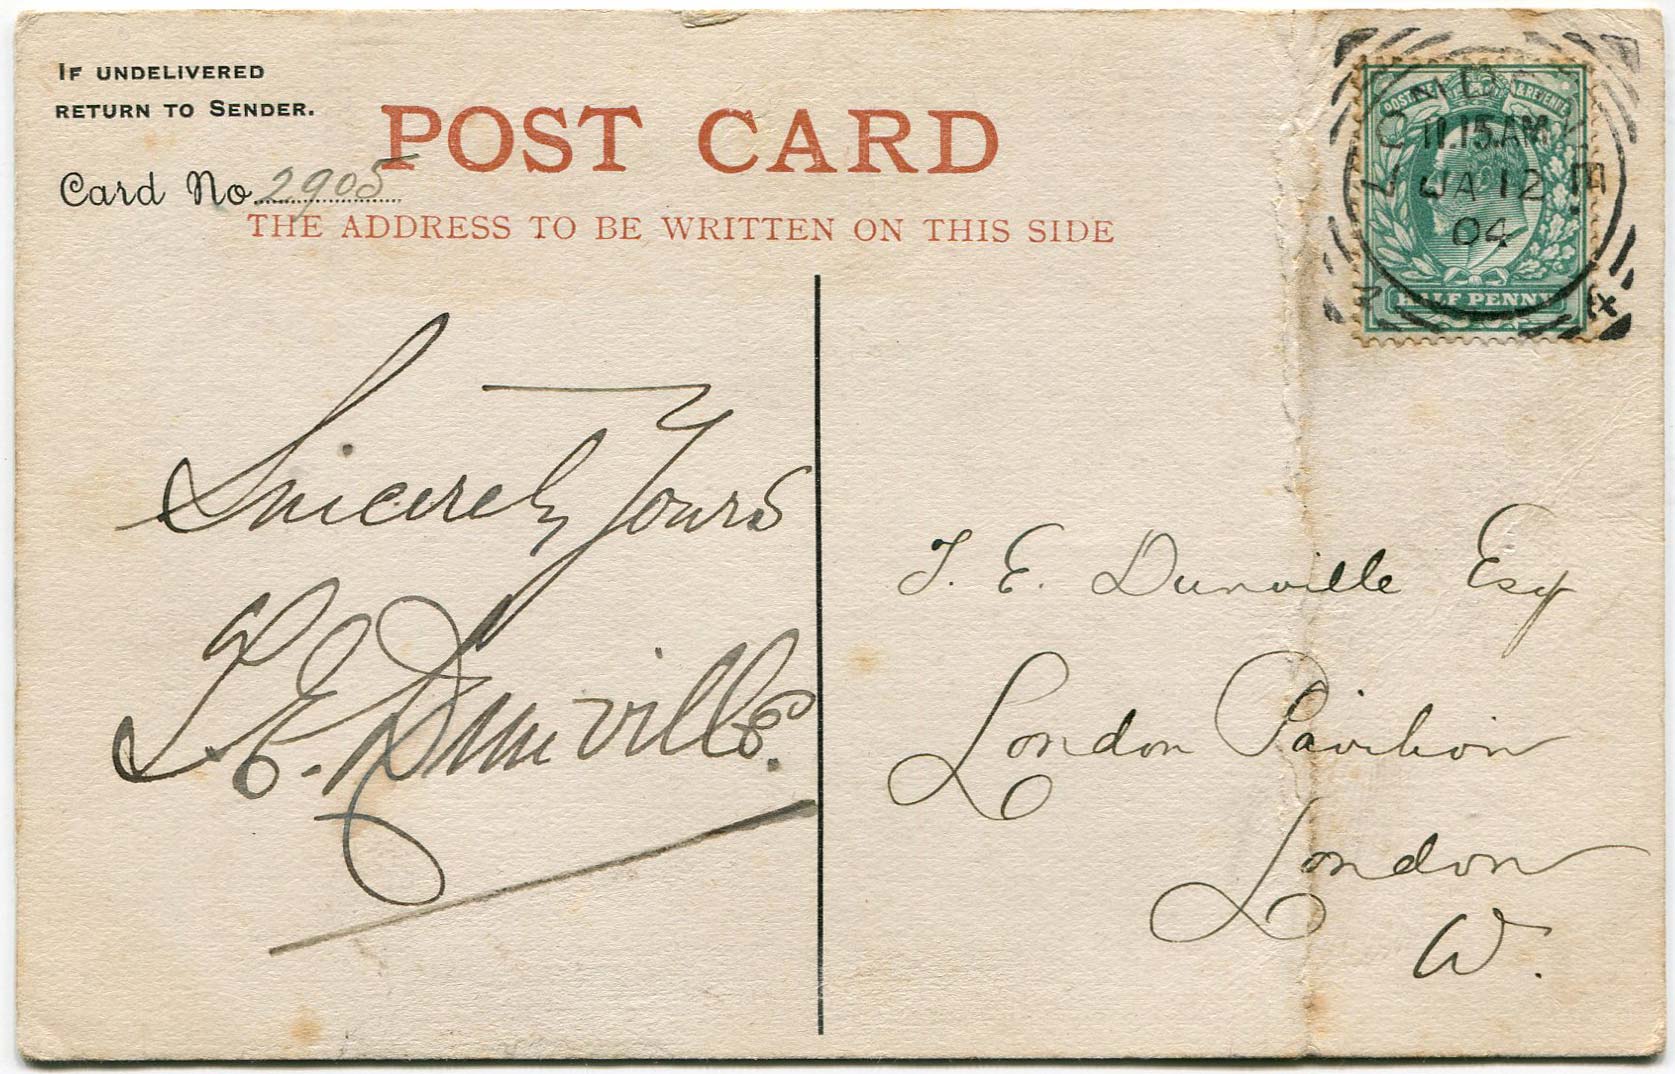 IF UNDELIVERED
RETURN TO SENDER.
Card No 2905
POST CARD
THE ADDRESS TO BE WRITTEN ON THIS SIDE
POSTAGE & REVENUE
LONDON. E.
11.15.AM
JA 12
04
HALF PENNY
Sincerely Yours
T. E. Dunville.
T. E. Dunville Esq
London Pavilion
London
W.